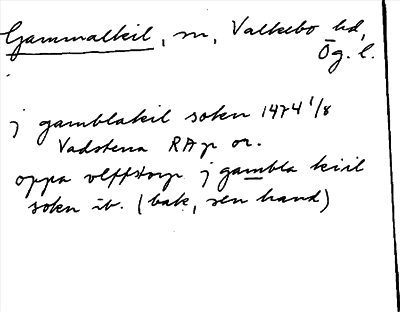 Gammalkil, sn, Valkebo hd,
Ög. l.
j gamblakil sokn 1474 1/8
Vadstena RAp or.
oppa vlffstorp j gambla kiil
sokn ib. (bak, sen hand)